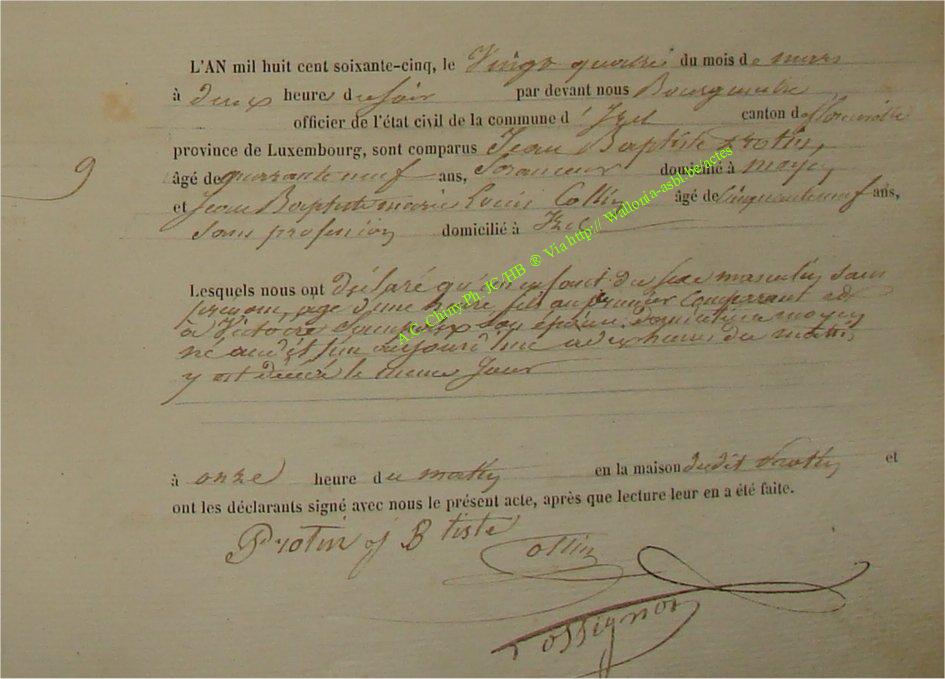 L'AN mil huit cent soixante-cinq, le Vingt quatre du mois de mars
à deux heures du soir par devant nous Bourgmestre
officier de l'état civil de la commune d'Izel canton de florenville
province de Luxembourg, sont comparus Jean Baptiste Protin,
9
âgé de quarante neuf ans, domicilié à moyen
et Jean Baptiste marie Louis Collin âgé de Cinquante neuf ans,
Sans profession domicilié à Izel
Lesquels nous ont déclaré qu'un enfant du sexe masculin Sans
prénom, agé d'une heure fils au premier Comparant et
a Victoire son épouse domicilié a moyen
né audit lieu aujourd'hui a dix heures du matin,
y est décédé le meme Jour
à onze heure du matin en la maison dudit Protin et
ont les déclarants signé avec nous le présent acte, après que lecture leur en a été faite.
Protin j Btiste
Collin
Fossignon
A.G. Chiny-Ph. JC/HB ® Via http://Wallonia-asbl.be/actes